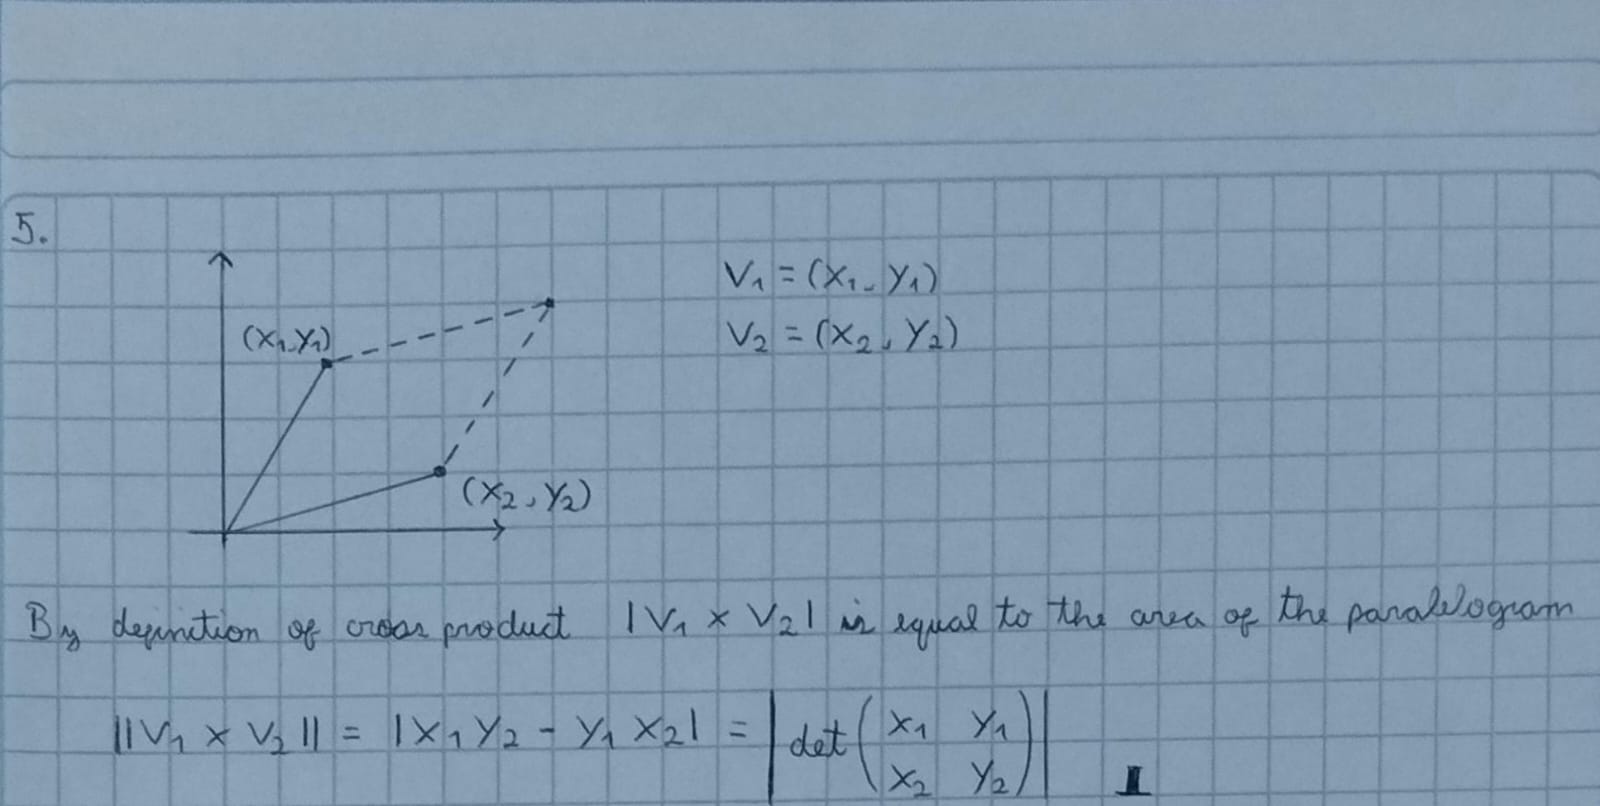 5.
V₁ = (x₁, y₁)
(x₁, y₁)
V₂ = (x₂, y₂)
(x₂, y₂)
By definition of cross product |V₁ × V₂| is equal to the area of the paralelogram
||V₁ × V₂|| = |x₁ y₂ - y₁ x₂| = |det(x₁ y₁
x₂ y₂)|